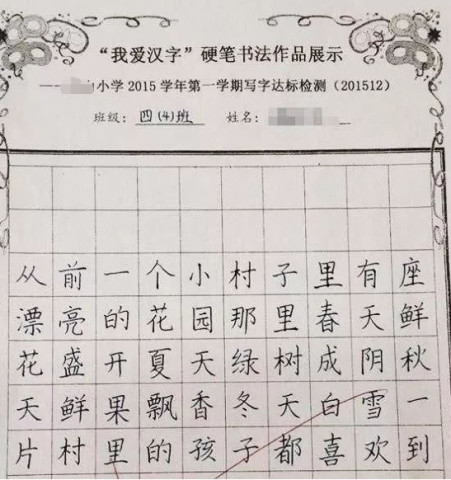 “我爱汉字”硬笔书法作品展示
小学2015学年第一学期写字达标检测（201512）
班级：四(4)班 姓名：
从前一个小村子里有座
漂亮的花园那里春天鲜
花盛开夏天绿树成阴秋
天鲜果飘香冬天白雪一
片村里的孩子都喜欢到